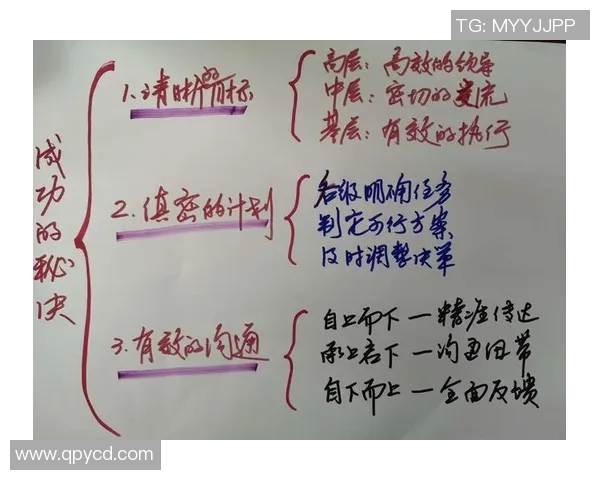 TG: MYYJJPP
成功的秘决
1. 清晰的目标
高层：高效的领导
中层：密切的交流
基层：有效的执行
2. 缜密的计划
各级明确任务
制定可行方案
及时调整决策
3. 有效的沟通
自上而下—精准传达
承上启下—沟通纽带
自下而上—全面反馈
www.qpycd.com